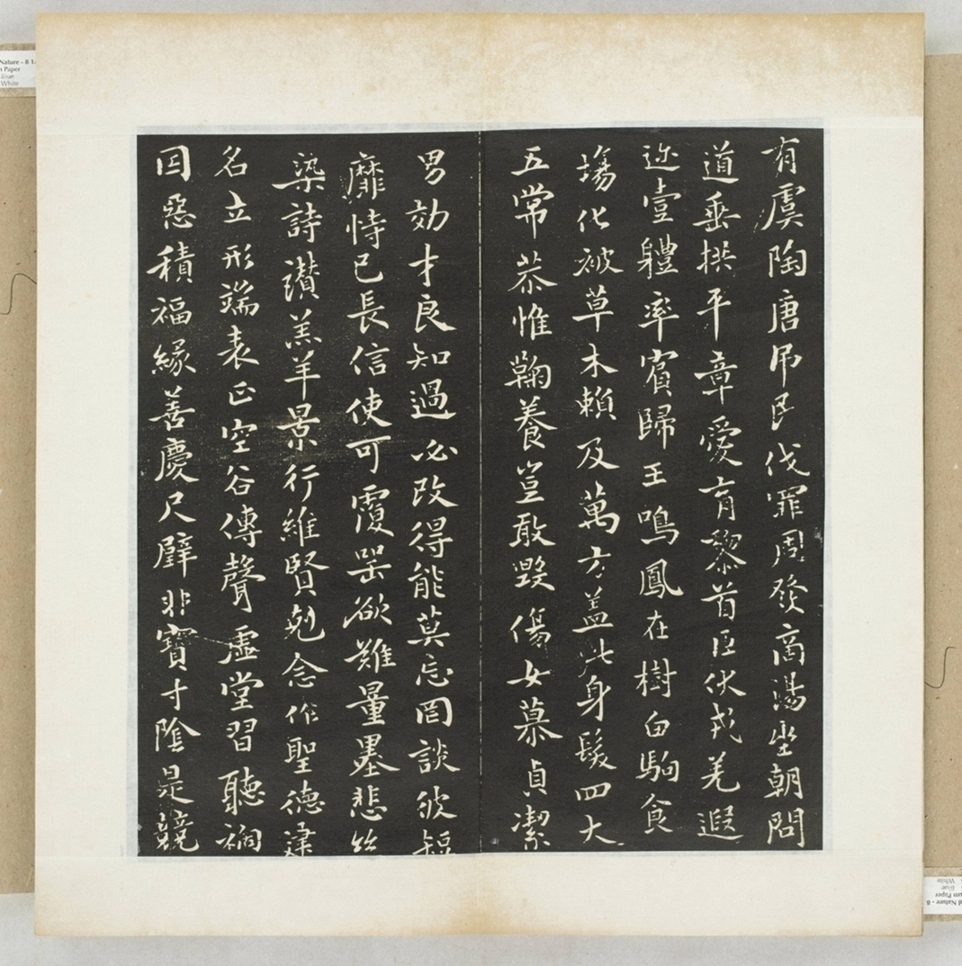 有虞陶唐吊民伐罪周發商湯坐朝問
道垂拱平章愛育黎首臣伏戎羌遐
迩壹軆率賓歸王鳴鳳在樹白駒食
場化被草木賴及萬方盖此身髮四大
五常恭惟鞠養豈敢毀傷女慕貞潔
男効才良知過必改得能莫忘罔談彼短
靡恃己長信使可覆器欲難量墨悲絲
染詩讚羔羊景行維賢剋念作聖德建
名立形端表正空谷傳聲虛堂習聽禍
因惡積福緣善慶尺璧非寶寸陰是競
Nature - 8
Paper
White